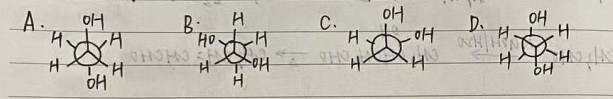 A. OH H H H H OH B. H HO H H OH H C. OH H OH H H D. OH H H H H OH